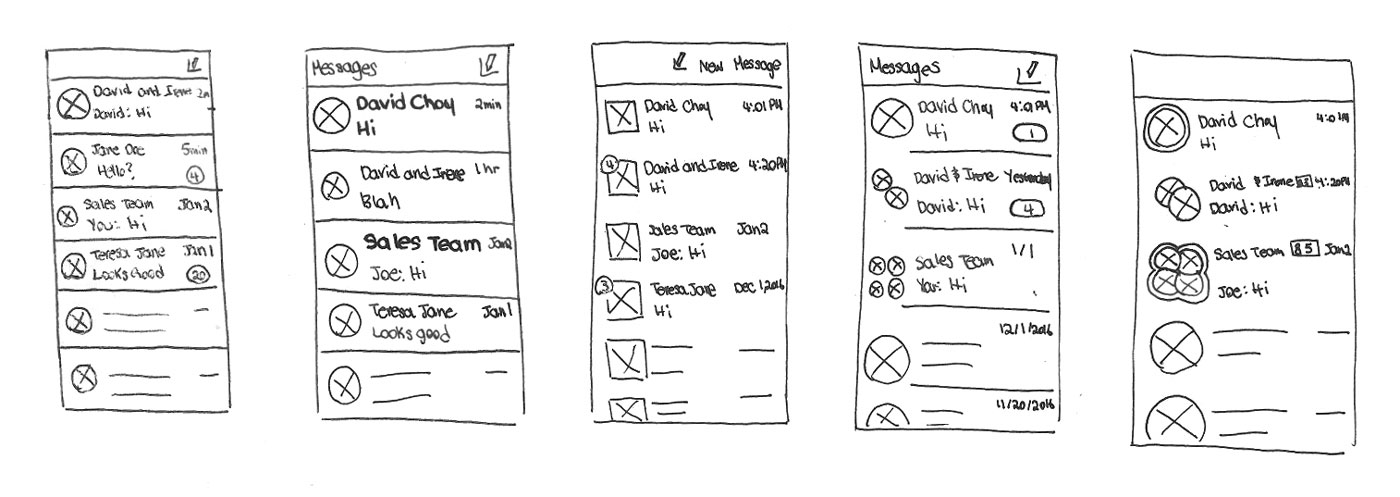 David and Irene 2m
David: Hi
Jane Doe 5min
Hello?
4
Sales Team Jan 2
You: Hi
Teresa Jane Jan 1
Looks Good
20
Messages
David Choy 2min
Hi
David and Irene 1 hr
Blah
Sales Team Jan 2
Joe: Hi
Teresa Jane Jan 1
Looks good
New Message
David Choy 4:01 PM
Hi
4
David and Irene 4:20PM
Hi
Sales Team Jan 2
Joe: Hi
3
Teresa Jane Dec 1, 2016
Hi
Messages
David Choy 4:01 PM
Hi
1
David & Irene Yesterday
David: Hi
4
Sales Team 1/1
You: Hi
12/1/2016
11/20/2016
David Choy
Hi
David & Irene 4:20PM
David: Hi
Sales Team 85 Jan 2
Joe: Hi